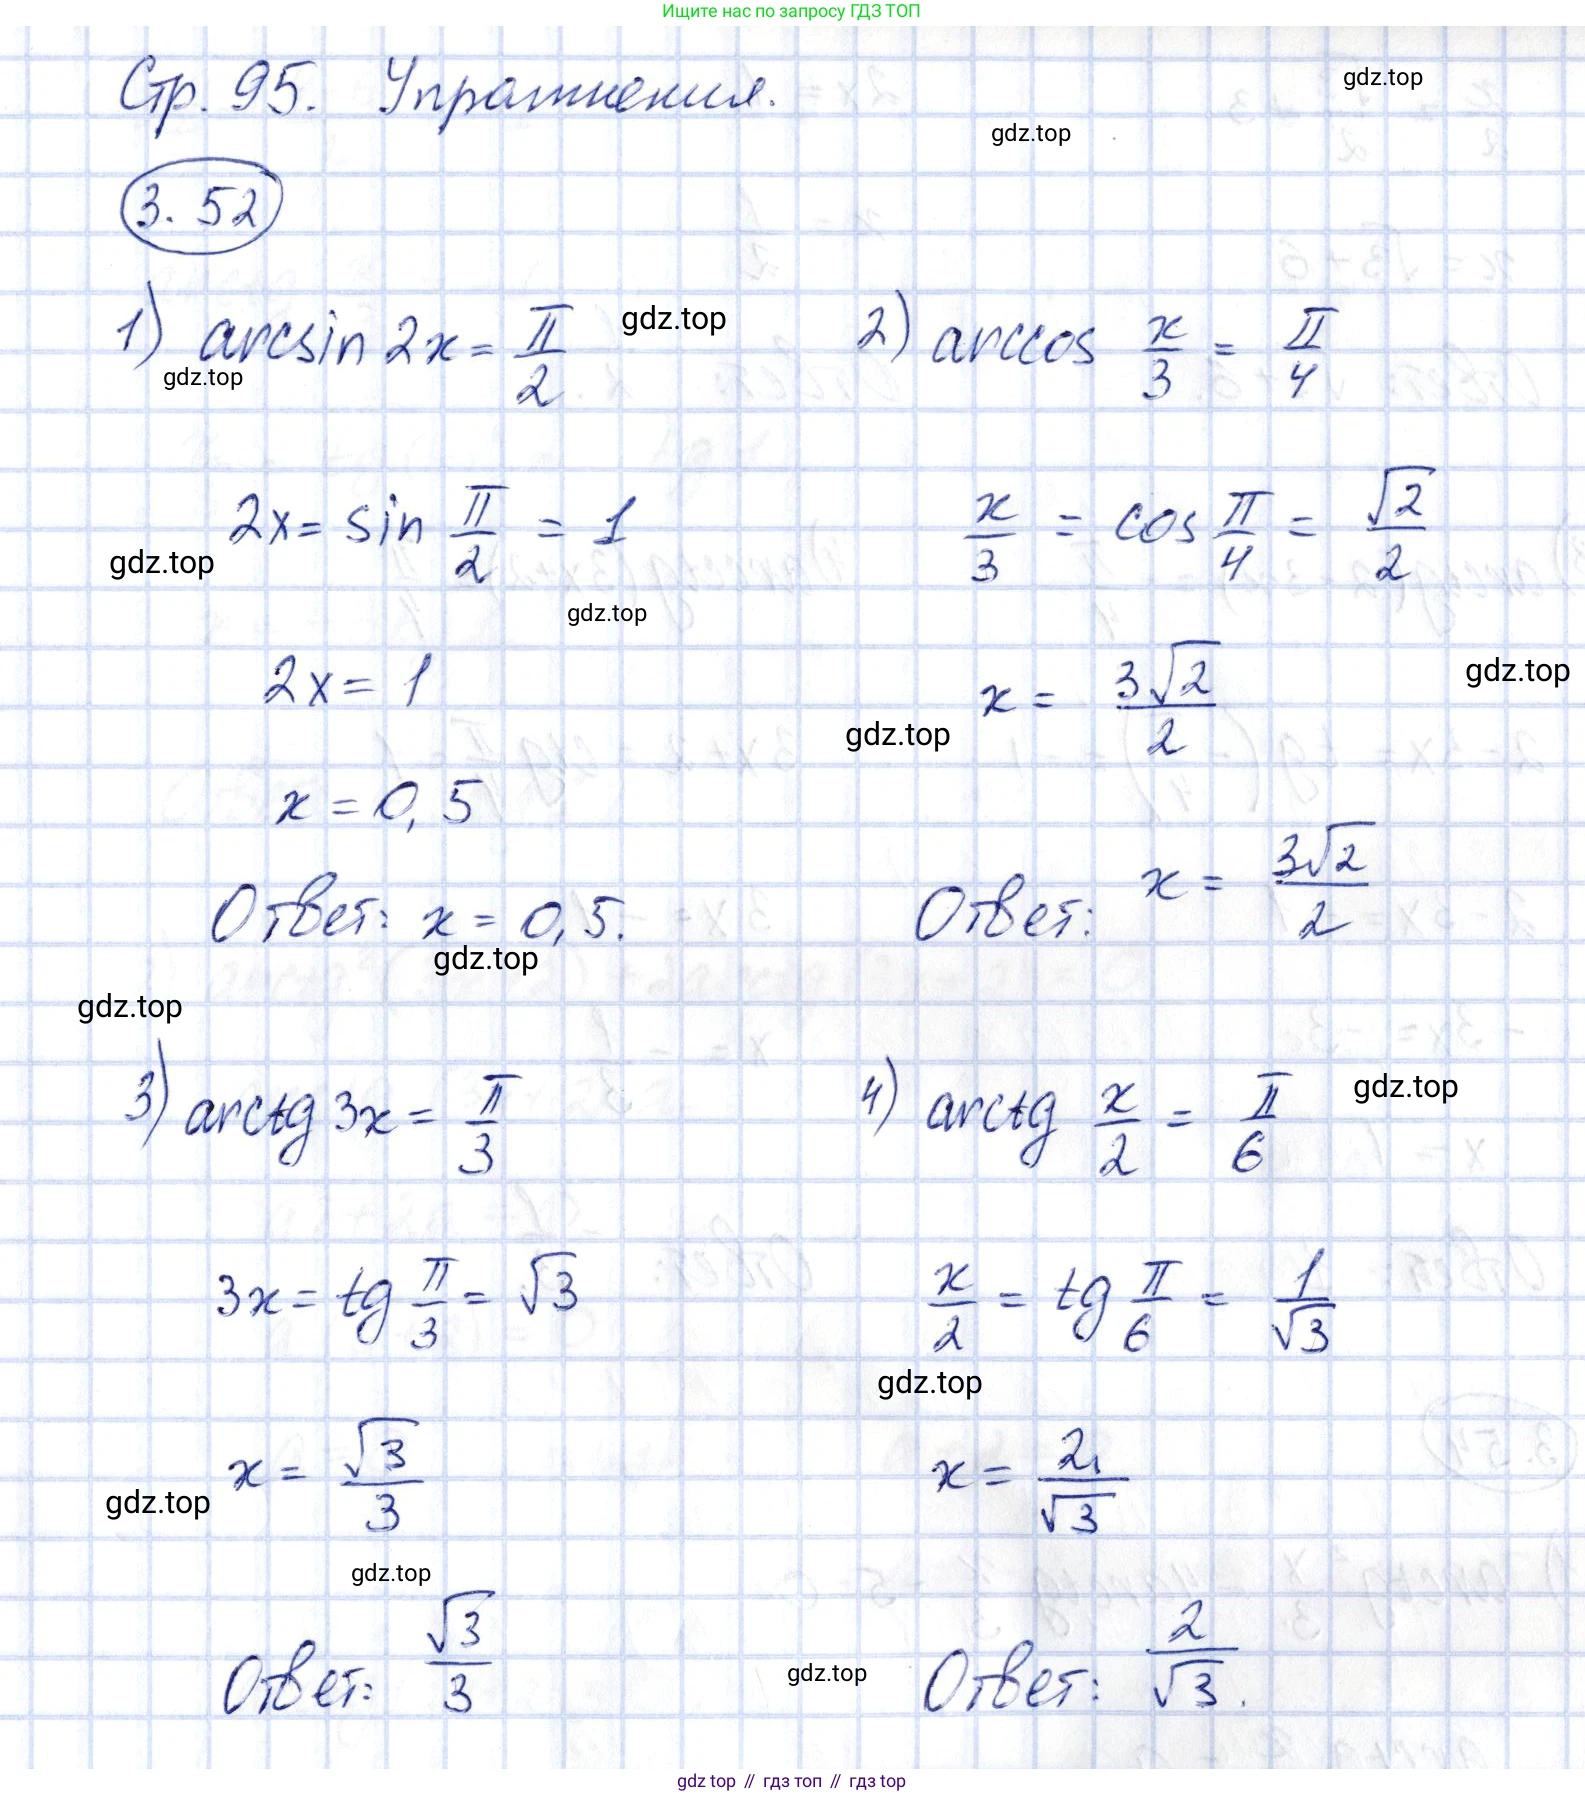 Ищите нас по запросу ГДЗ ТОП
Стр. 95. Упражнения.
gdz.top
gdz.top
3.52
1) arcsin 2x = π/2
gdz.top
gdz.top
2x = sin π/2 = 1
gdz.top
gdz.top
2x = 1
x = 0,5
Ответ: x = 0,5.
gdz.top
gdz.top
2) arccos x/3 = π/4
x/3 = cos π/4 = √2/2
gdz.top
x = 3√2/2
gdz.top
Ответ: x = 3√2/2
3) arctg 3x = π/3
3x = tg π/3 = √3
x = √3/3
gdz.top
gdz.top
Ответ: √3/3
4) arctg x/2 = π/6
gdz.top
x/2 = tg π/6 = 1/√3
gdz.top
x = 2/√3
gdz.top
Ответ: 2/√3.
gdz top // гдз топ // гдз top